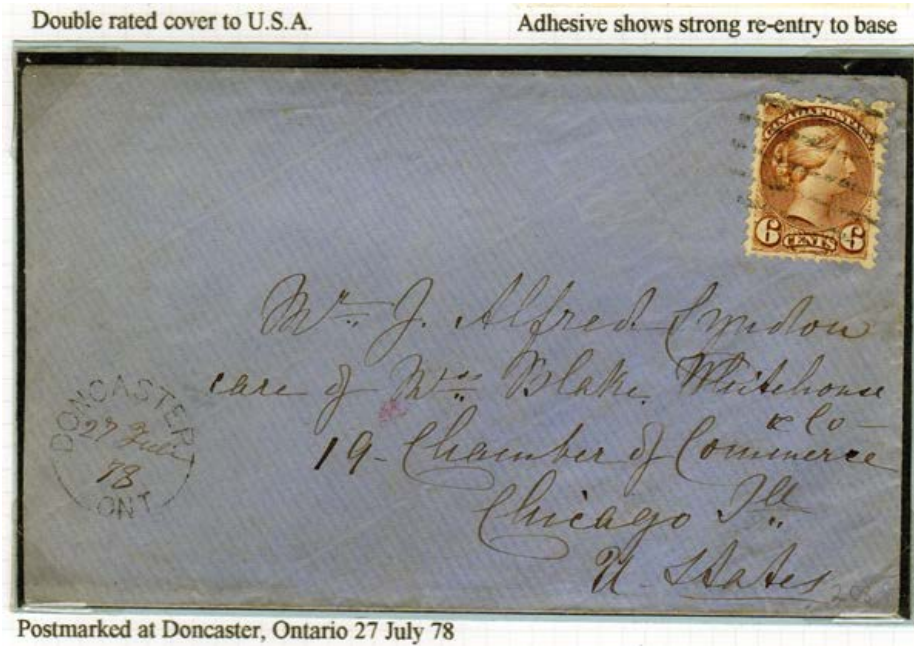 Double rated cover to U.S.A.
Adhesive shows strong re-entry to base
CANADA POSTAGE
6 CENTS 6
Mr. J. Alfred Lyndon
care of Mrss Blake Whitehouse
& Co
19 - Chamber of Commerce
Chicago Ill
U. States
DONCASTER
27 July
78
ONT
Postmarked at Doncaster, Ontario 27 July 78